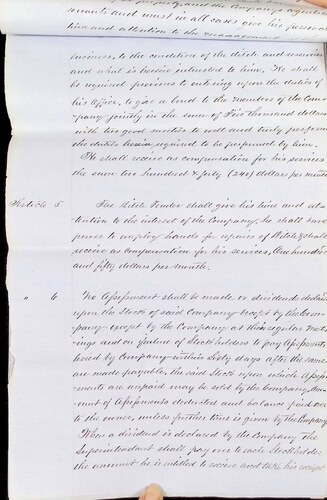 and must in all cases give his personal
time and attention to the management
business, to the condition of the ditch and reservoirs
and what is herein intrusted to him. He shall
be required previous to entering upon the duties of
his Office, to give a bond to the members of the Com-
pany jointly in the sum of Five thousand dollars
with two good sureties to well and truly perform
the duties herein required to be performed by him.
He shall receive as compensation for his services
the sum two hundred & forty (240) dollars per month
Article 5 The Ditch Tender shall give his time and at-
tention to the interest of the Company, he shall have
power to employ hands for repairs of Ditch & shall
receive as compensation for his services, One hundred
and fifty dollars per month.
" 6 No Assessment shall be made or dividends declared
upon the Stock of said Company except by the Com-
pany except by the Company at their regular meet-
ings and on failure of Stockholders to pay Assessments
levied by Company within Sixty days after the same
are made payable, the said Stock upon which Assess-
ments are unpaid may be sold by the Company, Am-
ount of Assessments deducted and balance paid over
to the owner, unless further time is given by the Company
When a dividend is declared by the Company the
Superintendant shall pay over to each Stockholder
the amount he is entitled to receive and take his receipt